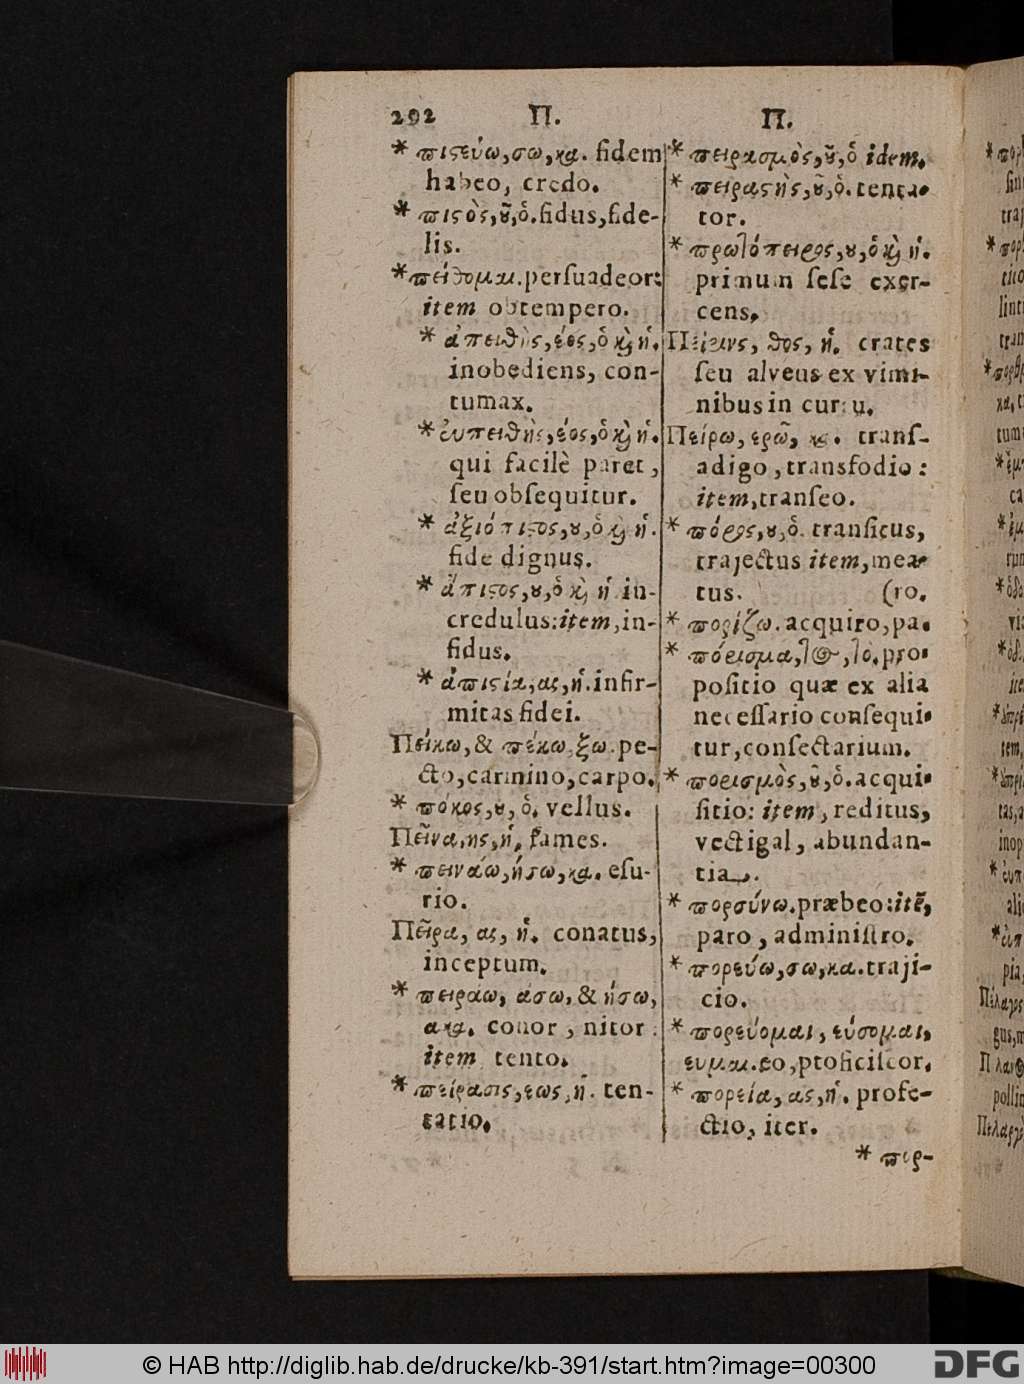 292 Π. Π.
* πιςεύω,σω,κα. fidem
habeo, credo.
* πιςὸς,ȣ͂,ὁ. fidus,fide-
lis.
* πείθομαι. perſuadeor:
item obtempero.
* ἀπειθὴς,έος,ὁ κὶ ἡ.
inobediens, con-
tumax.
* ἐυπειθὴς,έος,ὁ κὶ ἡ.
qui facilè paret,
ſeu obſequitur.
* ἀξιόπιςος,ȣ,ὁ κὶ ἡ.
fide dignus.
* ἄπιςος,ȣ,ὁ κὶ ἡ in-
credulus:item,in-
fidus.
* ἀπιςία,ας,ἡ.infir-
mitas fidei.
Πείκω,& πέκω,ξω. pe-
cto,carmino,carpo.
* πόκος,ȣ,ὁ. vellus.
Πεῖνα,ης,ἡ. fames.
* πεινάω,ήσω,κα. eſu-
rio.
Πεῖρα, ας, ἡ. conatus,
inceptum.
* πειράω, άσω,& ήσω,
ακα. conor, nitor:
item tento.
* πείρασις,εως,ἡ. ten-
tatio.
* πειρασμὸς,ȣ͂,ὁ idem.
* πειραςὴς,ȣ͂,ὁ. tenta-
tor.
* πρωτόπειρος,ȣ,ὁ κὶ ἡ.
primum ſeſe exer-
cens.
Πείρινς, θος, ἡ. crates
ſeu alveus ex vimi-
nibus in curru.
Πείρω, ερῶ, κα. tranſ-
adigo, transfodio:
item,tranſeo.
* πόρος,ȣ,ὁ. tranſitus,
trajectus item,mea-
tus. (ro.
* πορίζω. acquiro,pa-
* πόρισμα,τος,τὸ. pro-
poſitio quæ ex alia
neceſſario conſequi-
tur,conſectarium.
* πορισμὸς,ȣ͂,ὁ. acqui-
ſitio: item, reditus,
vectigal, abundan-
tia.
* πορσύνω.præbeo:itē,
paro, adminiſtro.
* πορεύω,σω,κα. traji-
cio.
* πορεύομαι, εύσομαι,
ευμαι. eo,proficiſcor.
* πορεία, ας,ἡ. profe-
ctio, iter.
* πορ-
© HAB http://diglib.hab.de/drucke/kb-391/start.htm?image=00300
DFG